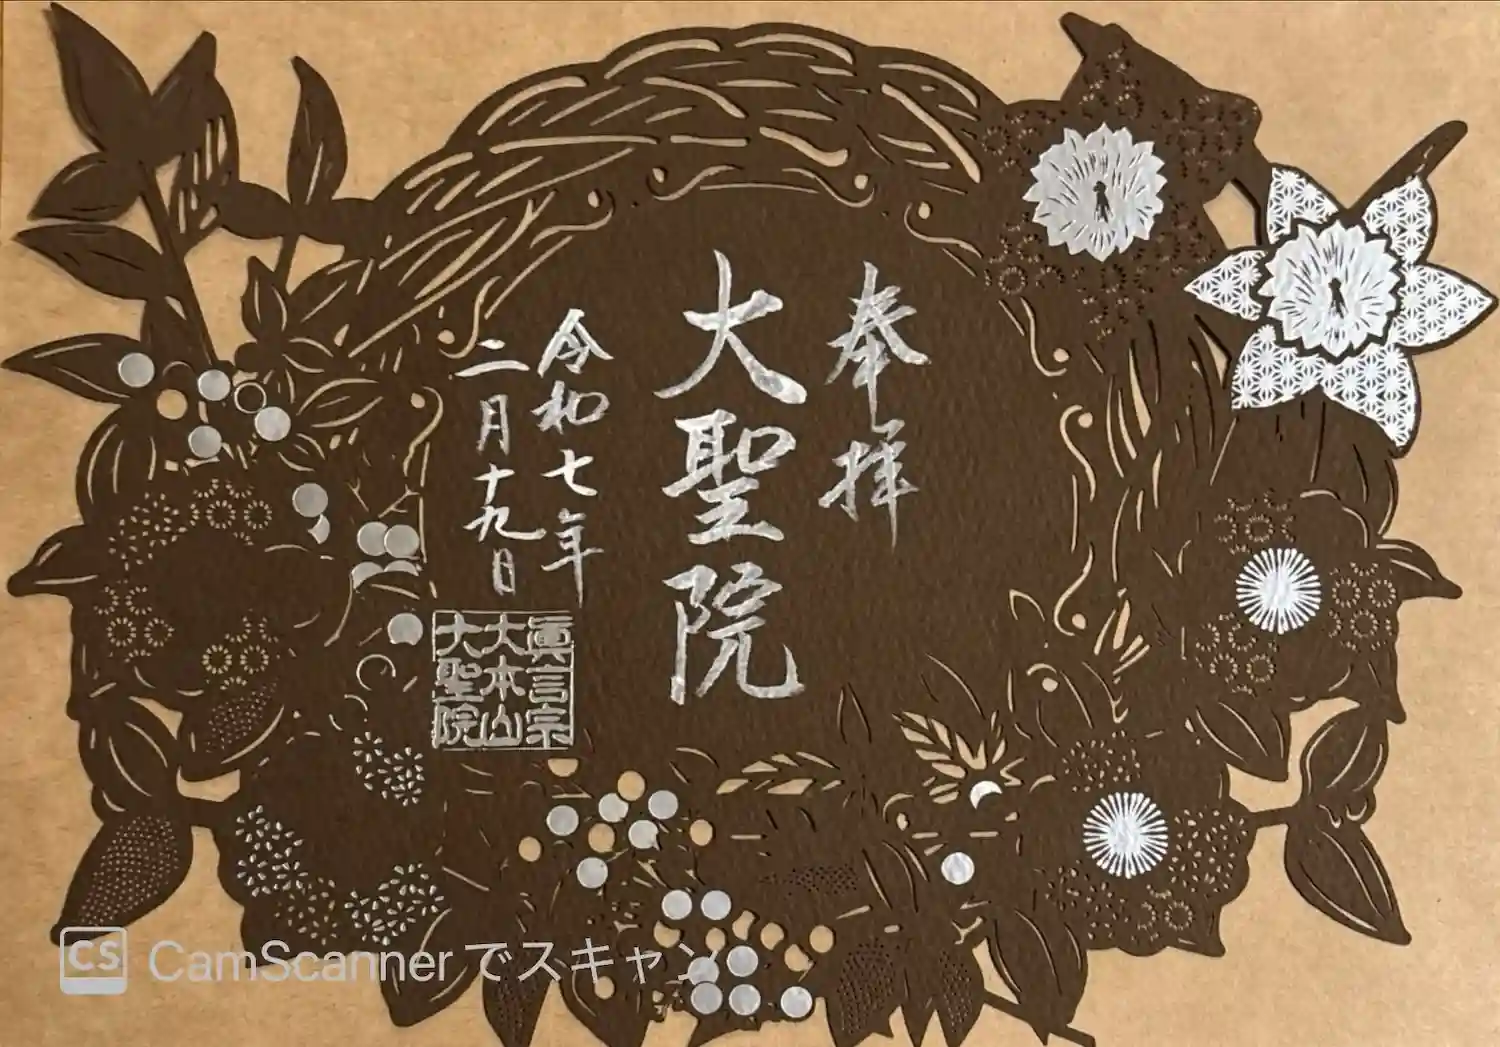 奉拝
大聖院
令和七年
二月十九日
眞言宗
大本山
大聖院
CS CamScanner でスキャン